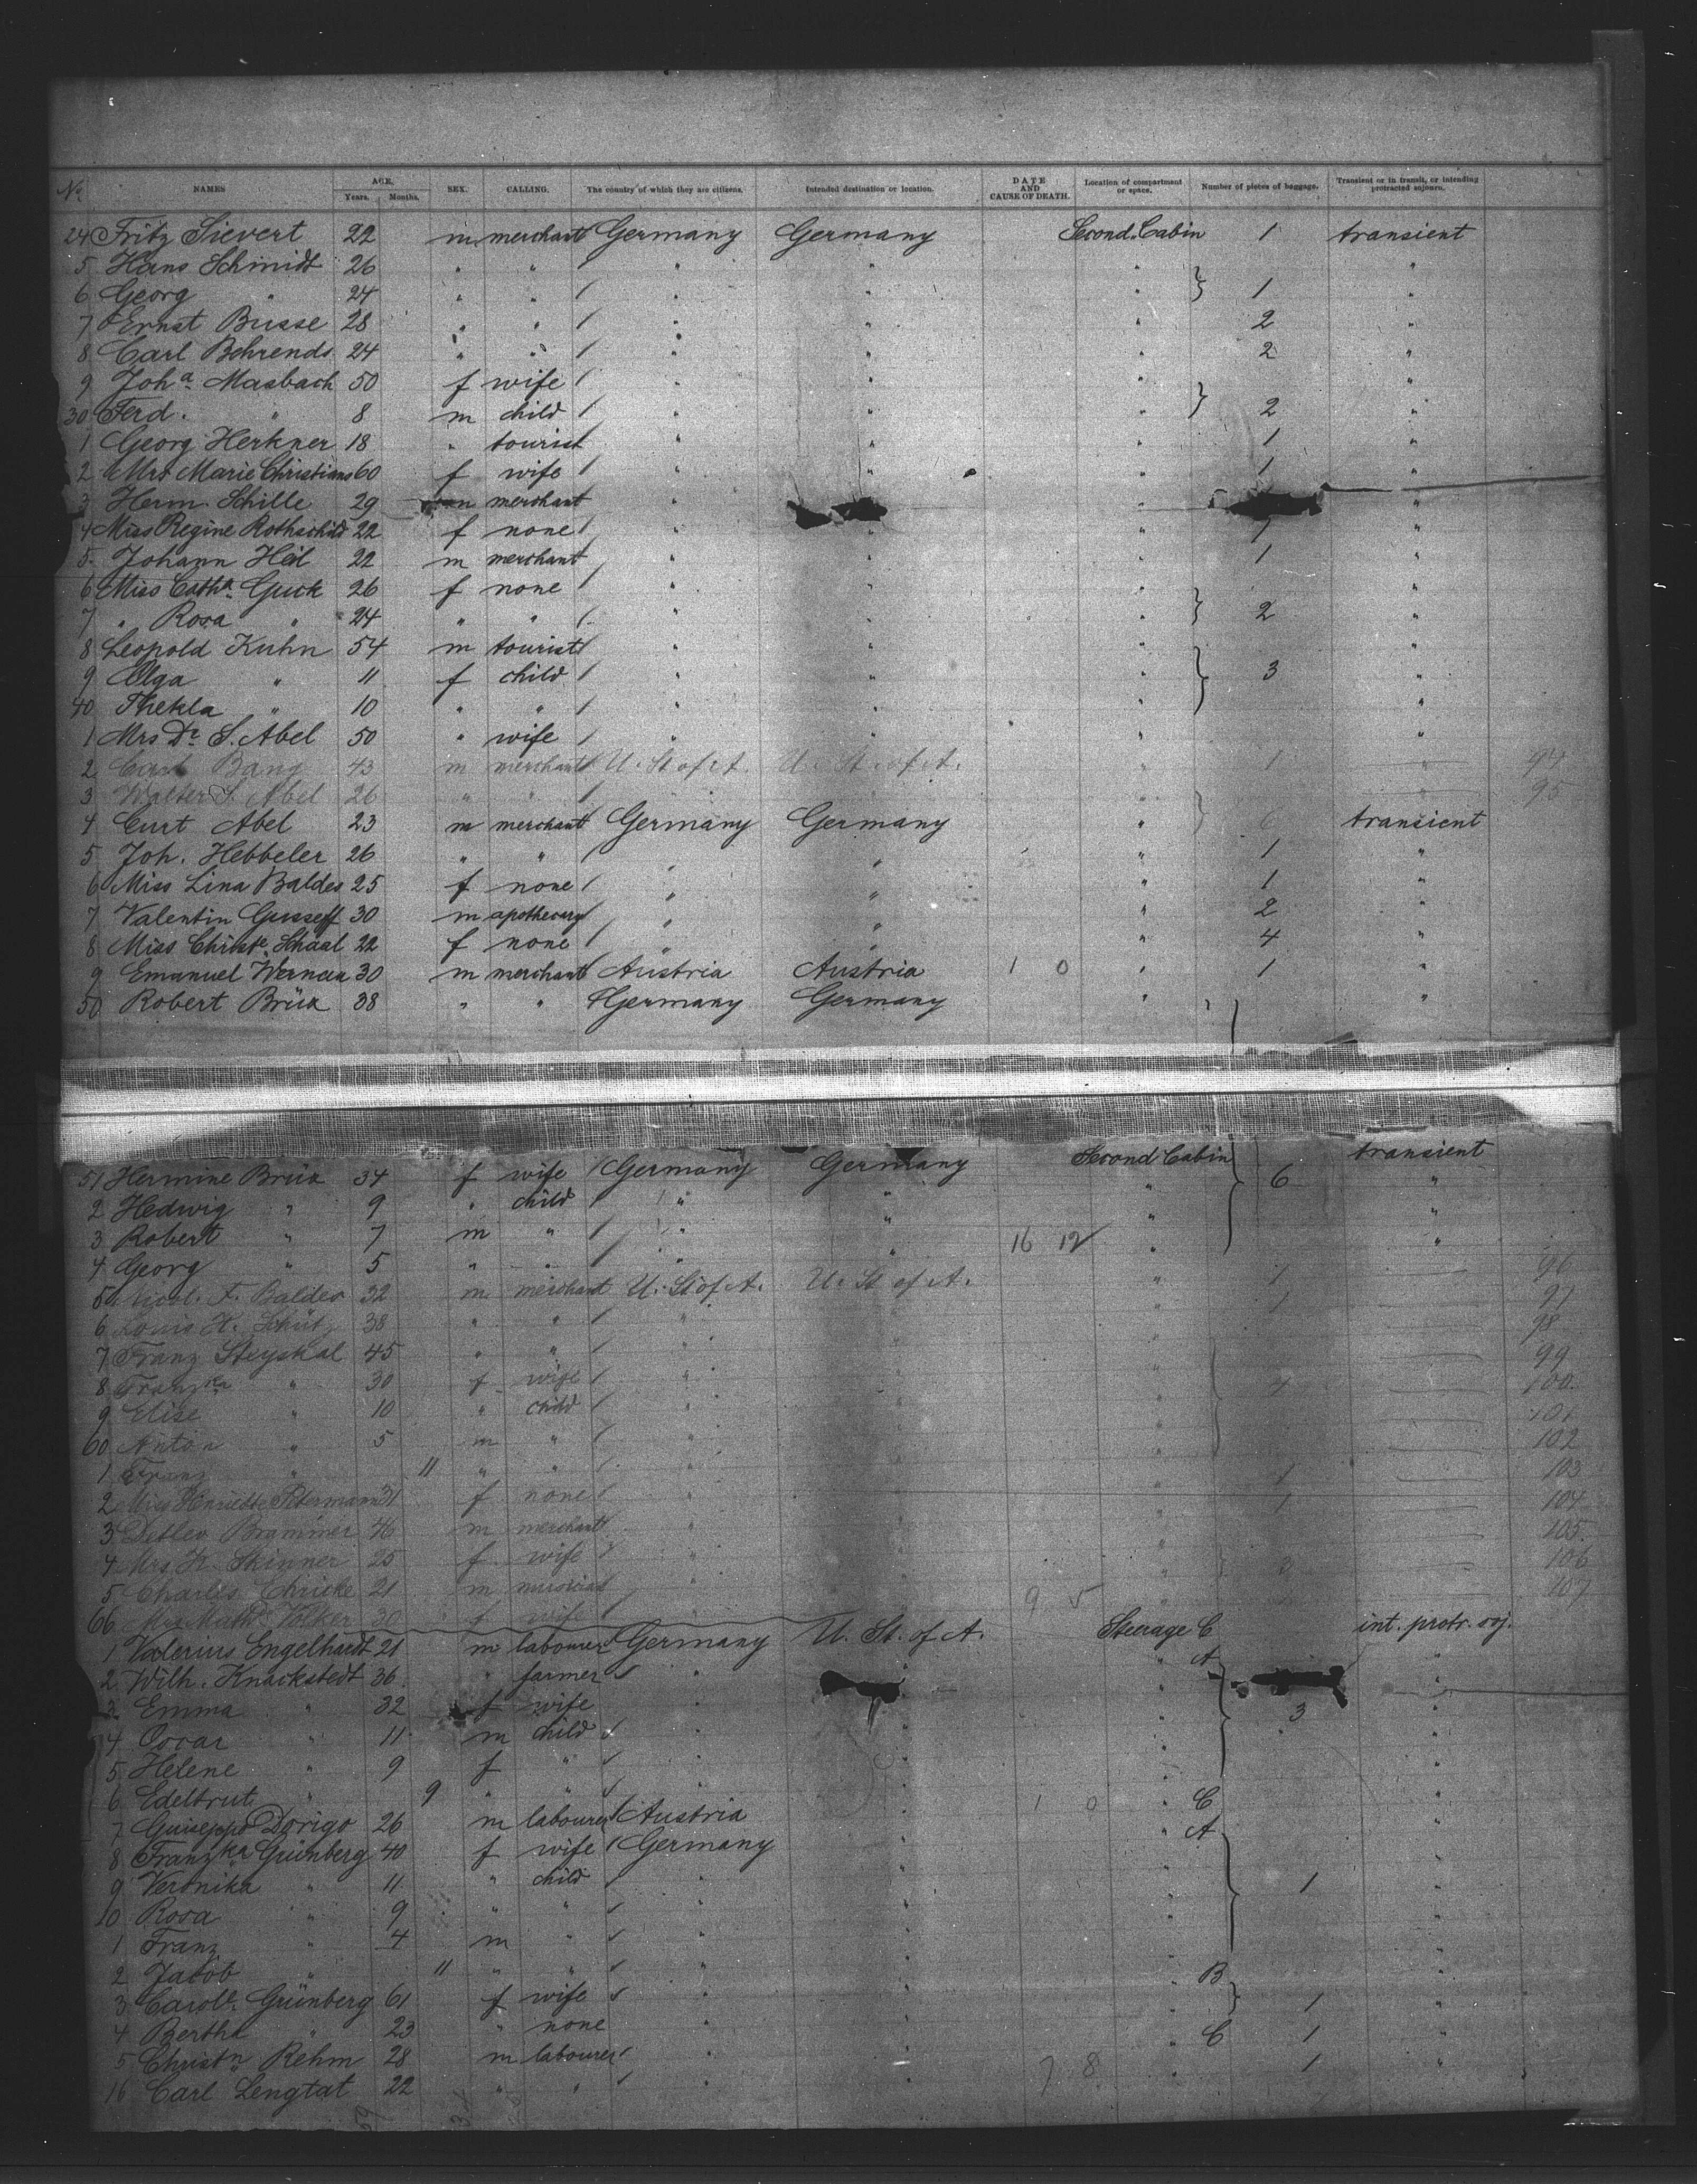 No. NAMES AGE. Years. Months. SEX. CALLING. The country of which they are citizens. Intended destination or location. DATE AND CAUSE OF DEATH. Location of compartment or space. Number of pieces of baggage. Transient or in transit, or intending protracted sojourn.
24 Fritz Sievert 22 m merchant Germany Germany Second Cabin 1 transient
5 Hans Schmidt 26 " " / " " " "
6 Georg " 24 " " / " " " 1 "
7 Ernst Busse 28 " " / " " " 2 "
8 Carl Behrends 24 " " / " " " 2 "
9 Joha. Masbach 50 f wife / " " " "
30 Ferd. " 8 m child / " " " 2 "
1 Georg Herkner 18 " tourist " " " 1 "
2 Mrs Marie Christians 60 f wife / " " " 1 "
3 Herm. Schille 29 m merchant " " "
4 Miss Regine Rothschild 22 f none / " " " 1 "
5 Johann Heil 22 m merchant " " " 1 "
6 Miss Catha. Guck 26 f none / " " " "
7 " Rosa " 24 " " / " " " 2 "
8 Leopold Kuhn 54 m tourist / " " " "
9 Olga " 11 f child / " " " 3 "
40 Thekla " 10 " " / " " " "
1 Mrs Dr. S. Abel 50 " wife / " " " "
2 Carl Bang 43 m merchant U. St of A. U. St. of A. " 1 94
3 Walter S. Abel 26 " " / " 95
4 Curt Abel 23 m merchant Germany Germany " 6 transient
5 Joh. Hebbeler 26 " " / " " " 1 "
6 Miss Lina Baldes 25 f none / " " " 1 "
7 Valentin Gusseff 30 m apothecary / " " " 2 "
8 Miss Christe. Schaal 22 f none / " " " 4 "
9 Emanuel Wernau 30 m merchant Austria Austria 1 0 " 1 "
50 Robert Brüx 38 " " / Germany Germany " "
51 Hermine Brüx 34 f wife / Germany Germany Second Cabin 6 transient
2 Hedwig " 9 " child / " " " "
3 Robert " 7 m " / " " " "
4 Georg " 5 " " / " " 16 12 " "
5 Nicol. F. Baldes 32 m merchant U. St of A. U. St of A. " 1 96
6 Louis H. Schütz 38 " " / " 1 97
7 Franz Steyskal 45 " " / " 98
8 Franzka " 30 f wife / " " 4 99
9 Elise " 10 " child / " 100
60 Anton " 5 m " / " 101
1 Franz " 11 " " / " 102
2 Miss Henriette Petermann 31 f none / " 1 103
3 Detlev Brammer 46 m merchant " 1 104
4 Mrs. Fr. Skinner 25 f wife / " 105
5 Charles 21 m musician " 3 106
66 Mrs Mathe Volker 30 f wife / " 9 5 107
1 Valerius Engelhardt 21 m labourer Germany U. St. of A. Steerage C int. protr. soj.
2 Wilh. Knackstedt 36 " farmer " " " A "
3 Emma " 32 f wife " " " 3 "
4 Oscar " 11 m child " " " "
5 Helene " 9 f " " " " "
6 Edeltrut " 9 " " " " " "
7 Guiseppo Dorigo 26 m labourer Austria " 1 0 " C "
8 Franzka Grünberg 40 f wife / Germany " " A "
9 Veronika " 11 " child / " " " 1 "
10 Rosa " 9 " " " " " "
1 Franz " 4 m " " " " "
2 Jacob " 11 " " " " " "
3 Carole. Grünberg 61 f wife " " " B 1 "
4 Bertha " 23 " none " " " "
5 Christn Rehm 28 m labourer " " " C 1 "
16 Carl Lengtat 22 " " " " 7 8 " 1 "